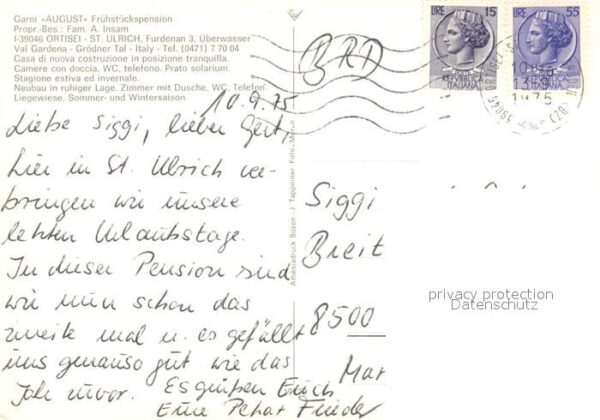 Garni «AUGUST» Frühstückspension
Propr.-Bes.: Fam. A. Insam
I-39046 ORTISEI - ST. ULRICH, Furdenan 3. Überwasser
Val Gardena - Grödner Tal - Italy - Tel. (0471) 7 70 04
Casa di nuova costruzione in posizione tranquilla.
Camere con doccia, WC, telefono. Prato solarium.
Stagione estiva ed invernale.
Neubau in ruhiger Lage. Zimmer mit Dusche, WC, Telefon.
Liegewiese. Sommer- und Wintersaison.
10.9.75
Liebe Siggi, lieber Gert,
hier in St. Ulrich ver-
bringen wir unsere
letzten Urlaubstage.
In dieser Pension sind
wir nun schon das
zweite mal u. es gefällt
uns genauso gut wie das
Jahr zuvor. Es grüßen Erich
Erne Frieder
J. Tappeiner
BRD
LIRE 15
REPVBBLICA
ITALIANA
LIRE 55
REPVBBLICA
ITALIANA
1975
Siggi
Breit
8500
Mar
privacy protection
Datenschutz